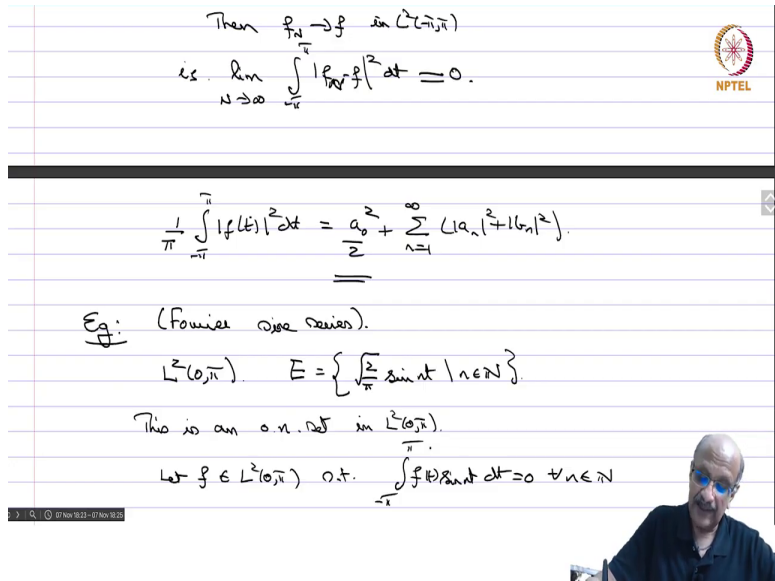 Then f_N → f in L²(-π,π)
is lim_{N→∞} ∫_{-π}^{π} |f_N - f|² dt = 0.
NPTEL
1/π ∫_{-π}^{π} |f(t)|² dt = a₀²/2 + ∑_{n=1}^{∞} (|aₙ|² + |bₙ|²).
Eg: (Fourier sine series).
L²(0,π). E = { √(2/π) sin nt | n∈ℕ }.
This is an o.n. set in L²(0,π).
Let f ∈ L²(0,π) s.t. ∫_{-π}^{π} f(t) sin nt dt = 0 ∀ n∈ℕ
07 Nov 18:23—07 Nov 18:25